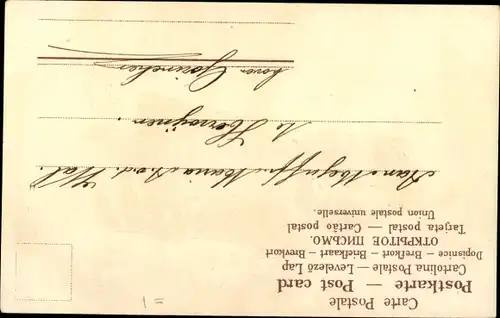 Carte Postale
Postkarte — Post card
Cartolina Postale — Levelező Lap
Dopisnice — Brefkort — Briefkaart — Brevkort
ОТКРЫТОЕ ПИСЬМО.
Tarjeta postal — Cartão postal
Union postale universelle.
Aan Mejuffr. Maria v. d. Wal.
te
voor Gorinchem
1=